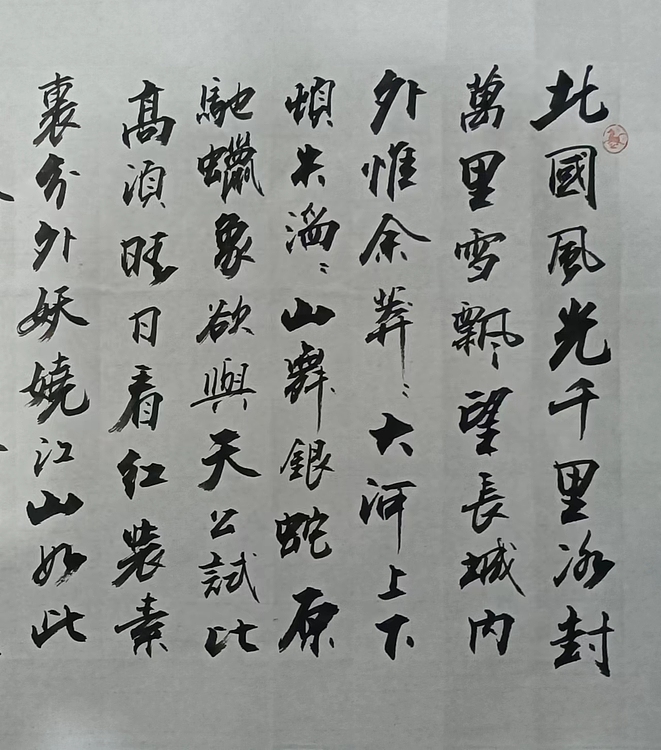 北國風光千里冰封
萬里雪飄望長城内
外惟余莽〻大河上下
頓失滔〻山舞銀蛇原
馳蠟象欲與天公試比
高須晴日看红裝素
裹分外妖嬈江山如此